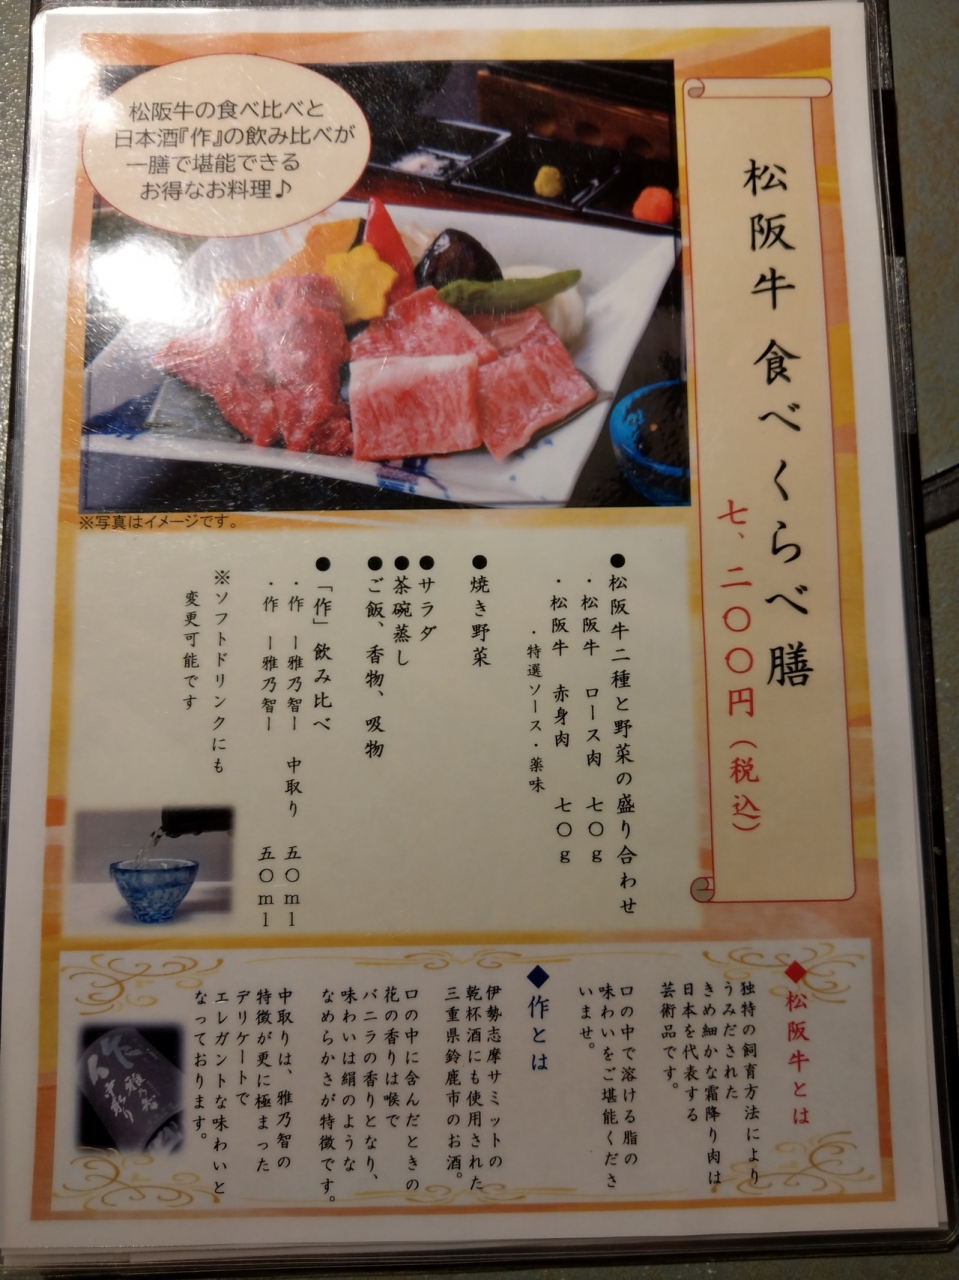 松阪牛の食べ比べと
日本酒『作』の飲み比べが
一膳で堪能できる
お得なお料理♪
松阪牛 食べくらべ膳
七、二〇〇円（税込）
※写真はイメージです。
●松阪牛二種と野菜の盛り合わせ
・松阪牛 ロース肉 七〇g
・松阪牛 赤身肉 七〇g
・特選ソース・薬味
●焼き野菜
●サラダ
●茶碗蒸し
●ご飯、香物、吸物
●「作」飲み比べ
・作 ー雅乃智ー 中取り 五〇ml
・作 ー雅乃智ー 五〇ml
※ソフトドリンクにも
変更可能です
◆松阪牛とは
独特の飼育方法により
うみだされた
きめ細かな霜降り肉は
日本を代表する
芸術品です。
口の中で溶ける脂の
味わいをご堪能くださ
いませ。
◆作とは
伊勢志摩サミットの
乾杯酒にも使用された
三重県鈴鹿市のお酒。
口の中に含んだときの
花の香りは喉で
バニラの香りとなり、
味わいは絹のような
なめらかさが特徴です。
中取りは、雅乃智の
特徴が更に極まった
デリケートで
エレガントな味わいと
なっております。
作
雅乃智
中取り